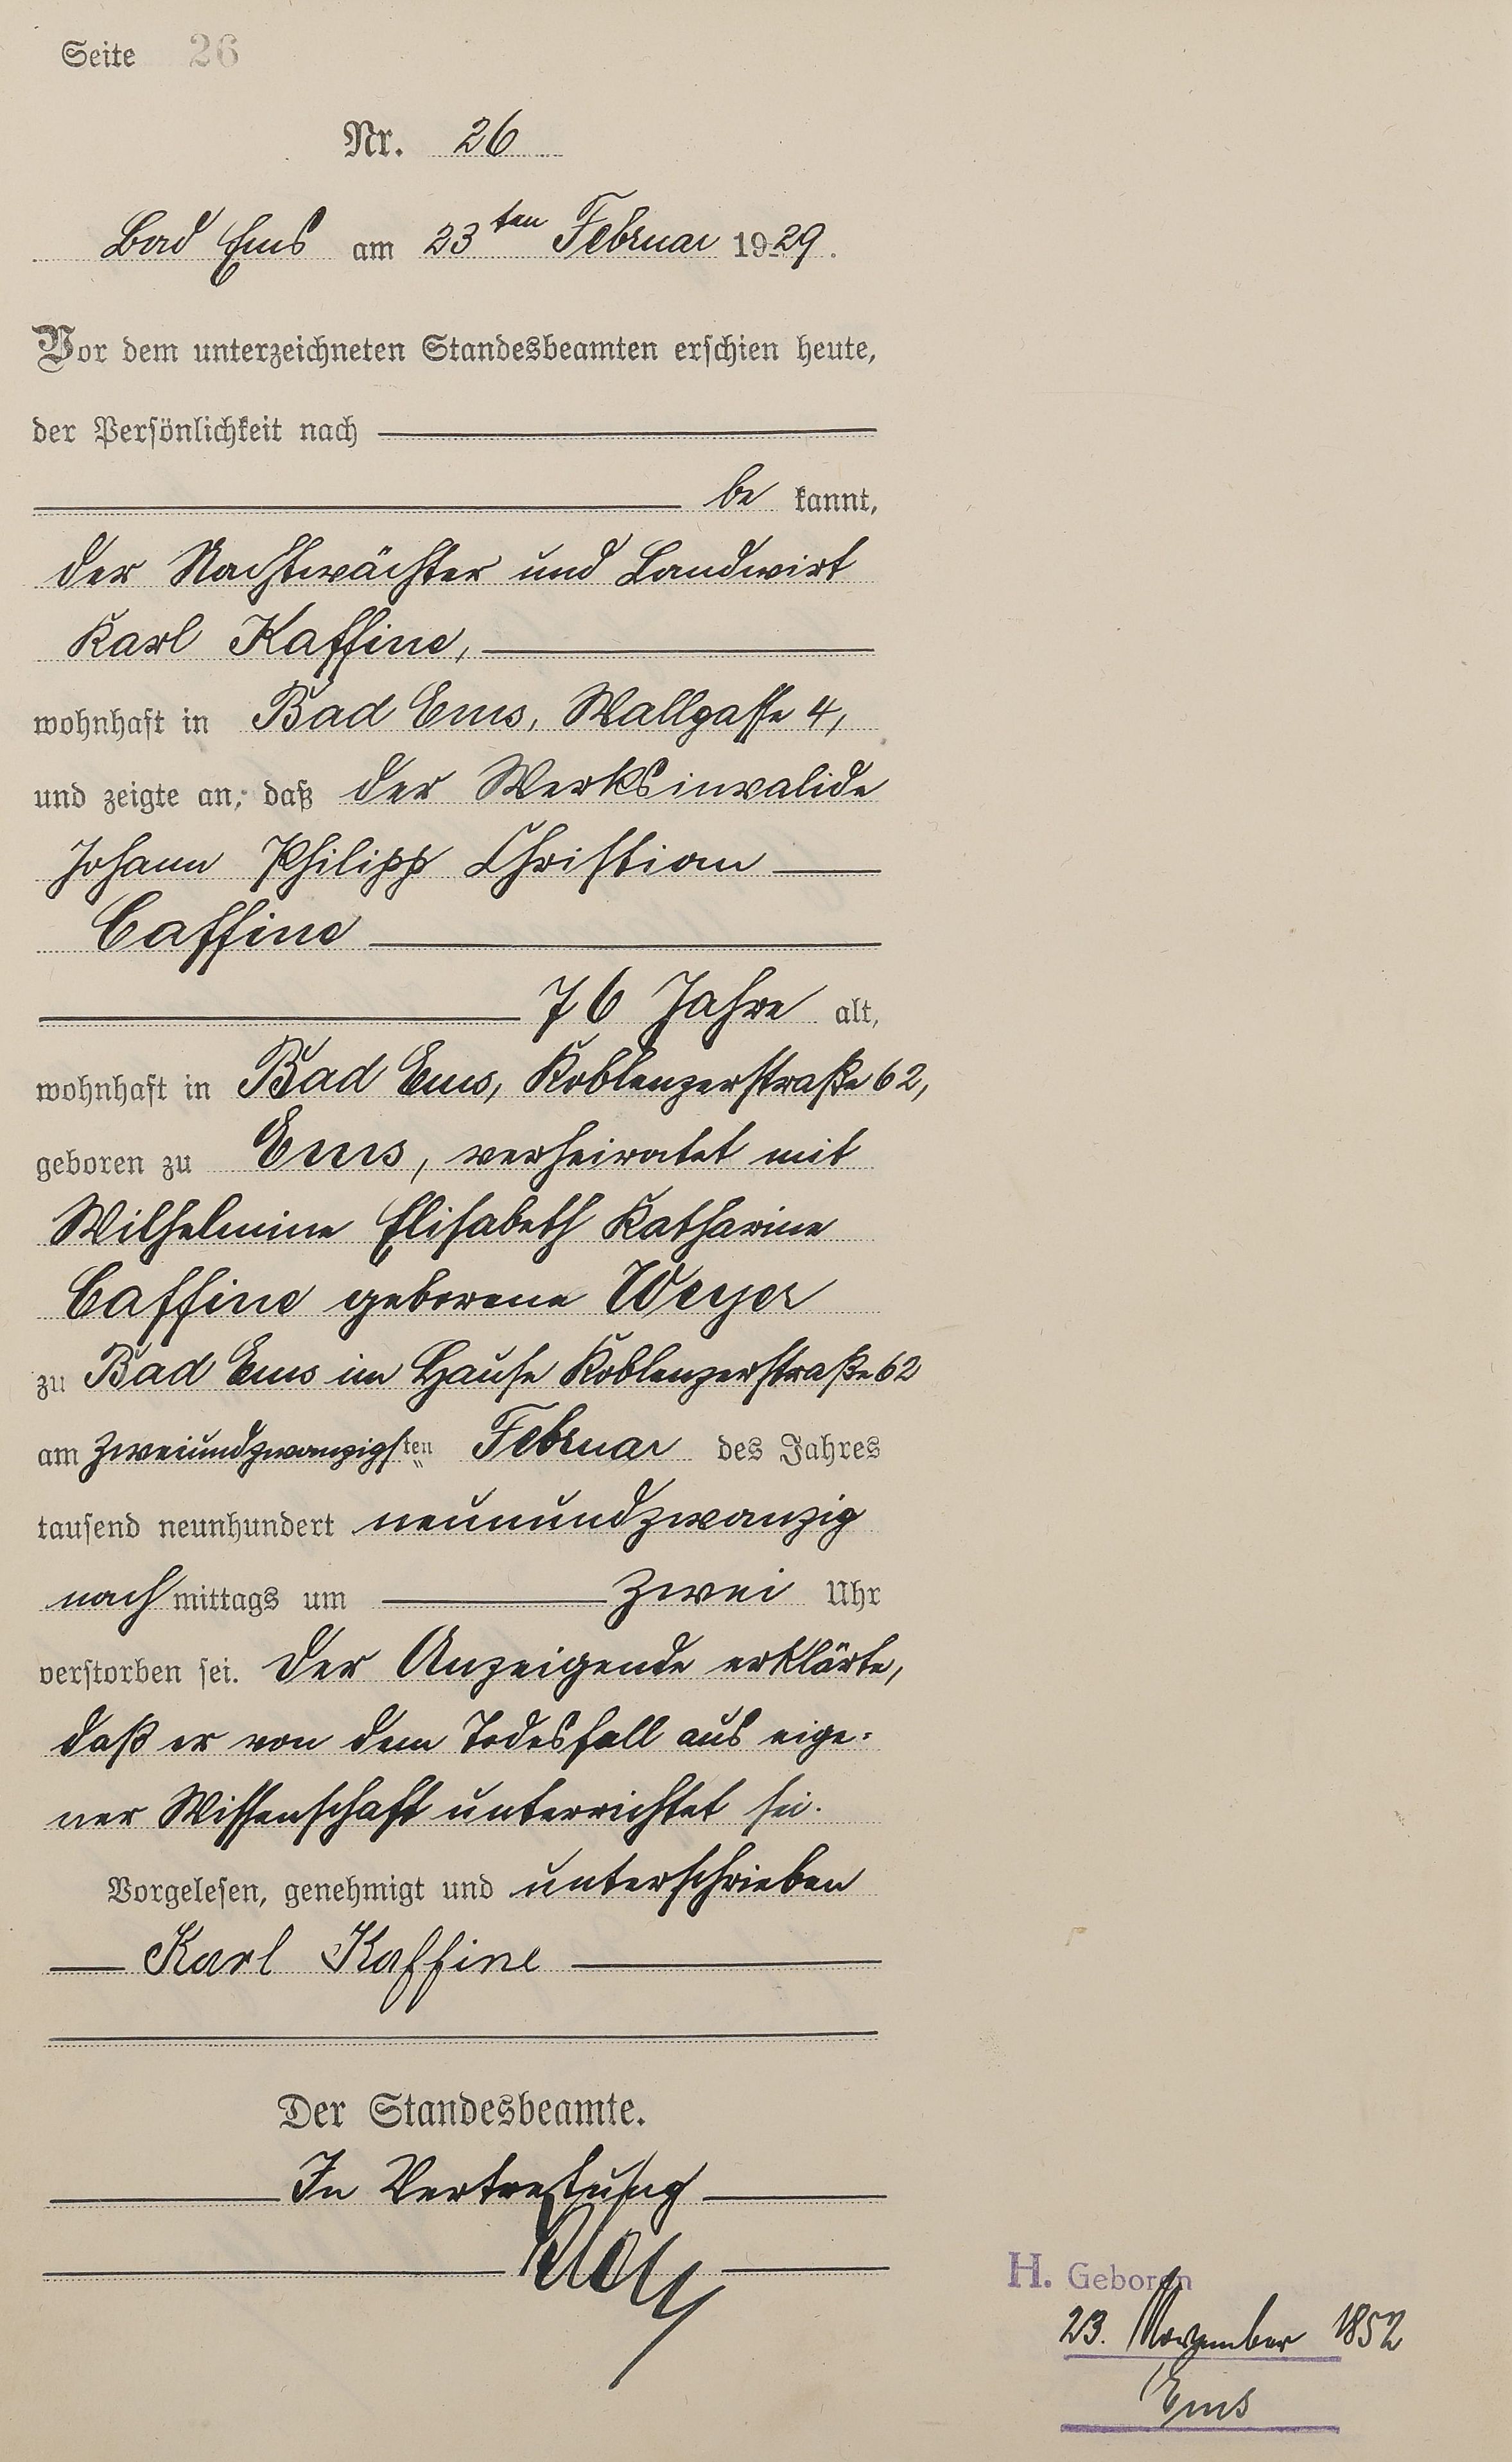 Seite 26
Nr. 26
Bad Ems am 23ten Februar 1929.
Vor dem unterzeichneten Standesbeamten erschien heute,
der Persönlichkeit nach
be kannt,
der Nachtwächter und Landwirt
Karl Kaffine,
wohnhaft in Bad Ems, Wallgasse 4,
und zeigte an, daß der Werksinvalide
Johann Philipp Christian
Caffine
76 Jahre alt,
wohnhaft in Bad Ems, Koblenzerstraße 62,
geboren zu Ems, verheiratet mit
Wilhelmine Elisabeth Katharine
Caffine geborene Weyer
zu Bad Ems im Hause Koblenzerstraße 62
am zweiundzwanzigsten Februar des Jahres
tausend neunhundert neunundzwanzig
nachmittags um zwei Uhr
verstorben sei. Der Anzeigende erklärte,
daß er von dem Todesfall aus eige-
ner Wissenschaft unterrichtet sei.
Vorgelesen, genehmigt und unterschrieben
Karl Kaffine
Der Standesbeamte.
In Vertretung
H. Geboren
23. November 1852
Ems